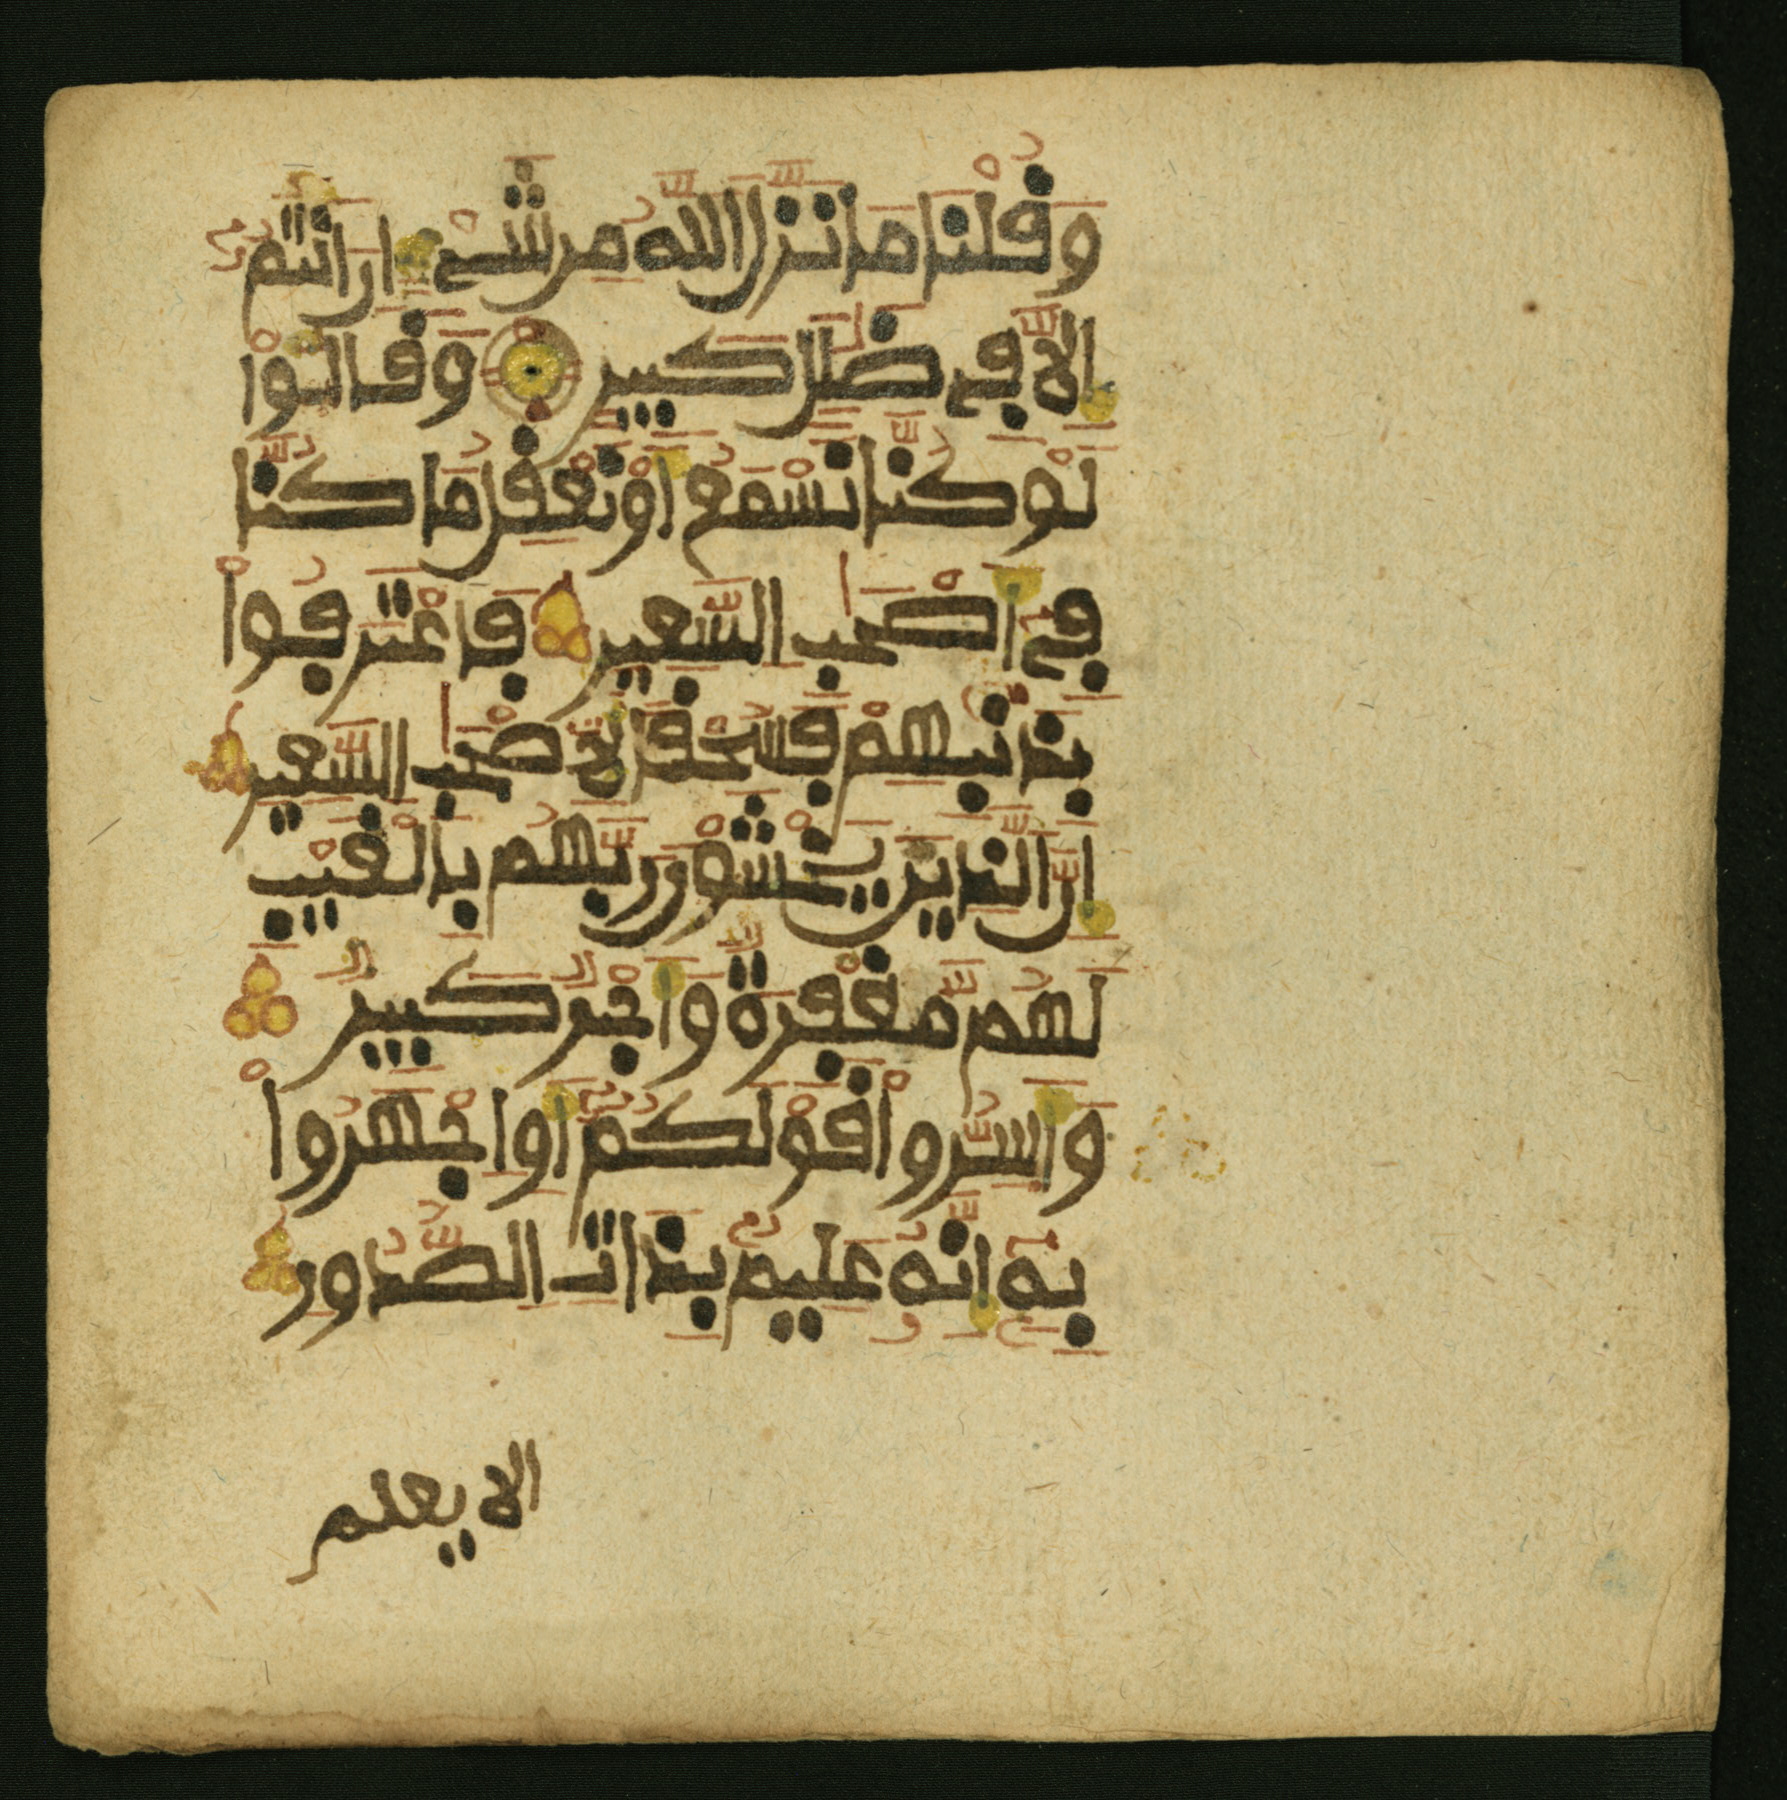 وَقُلْنَا مَا نَزَّلَ اللَّهُ مِن شَيْءٍ اِنَ اَنتُمُ
إِلَّا فِي ضَلَٰلٍ كَبِيرٍ وَقَالُواْ
لَوْ كُنَّا نَسْمَعُ أَوْ نَعْقِلُ مَا كُنَّا
فِي أَصْحَٰبِ السَّعِيرِ فَاعْتَرَفُواْ
بِذَنۢبِهِمْ فَسُحْقاً لِّأَصْحَٰبِ السَّعِيرِ
إِنَّ الَّذِينَ يَخْشَوْنَ رَبَّهُم بِالْغَيْبِ
لَهُم مَّغْفِرَةٌ وَأَجْرٌ كَبِيرٌ
وَأَسِرُّواْ قَوْلَكُمُ أَوِ اجْهَرُواْ
بِهِ إِنَّهُ عَلِيمٌ بِذَاتِ الصُّدُورِ
الا يعلم